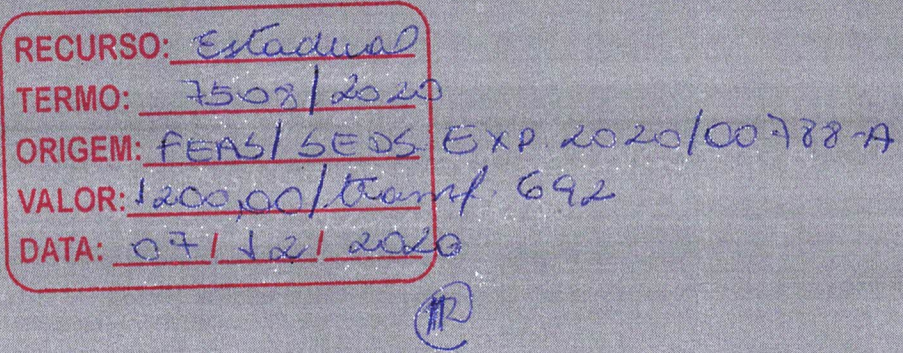 RECURSO: Estadual
TERMO: 7508/2020
ORIGEM: FEAS/SEDS EXP. 2020/00788-A
VALOR: 1200,00/transf. 692
DATA: 07/12/2020